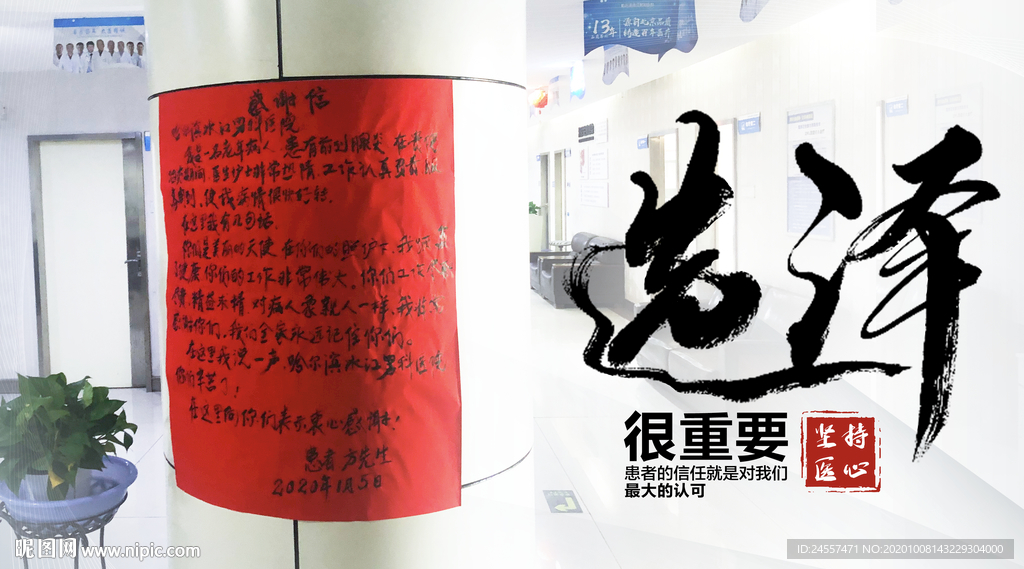 13年
感谢信
哈尔滨水江男科医院
我是一名老年病人，患有前列腺炎 在
期间，医生护士非常热情，工作认真
使我病情很快好转，
在这里我有几句话，
你们是美丽的天使 在你们的照护下，我
健康 你们的工作非常伟大，你们
精益求精 对病人象亲人一样，我
感谢你们，我们全家永远记住你们。
在这里我说一声，哈尔滨水江男科医院
你们辛苦了！
在这里向你们表示衷心感谢。
患者 方先生
2020年1月5日
选泽
很重要
患者的信任就是对我们
最大的认可
坚持
医心
昵图网 www.nipic.com
ID:24557471 NO:20201008143229304000